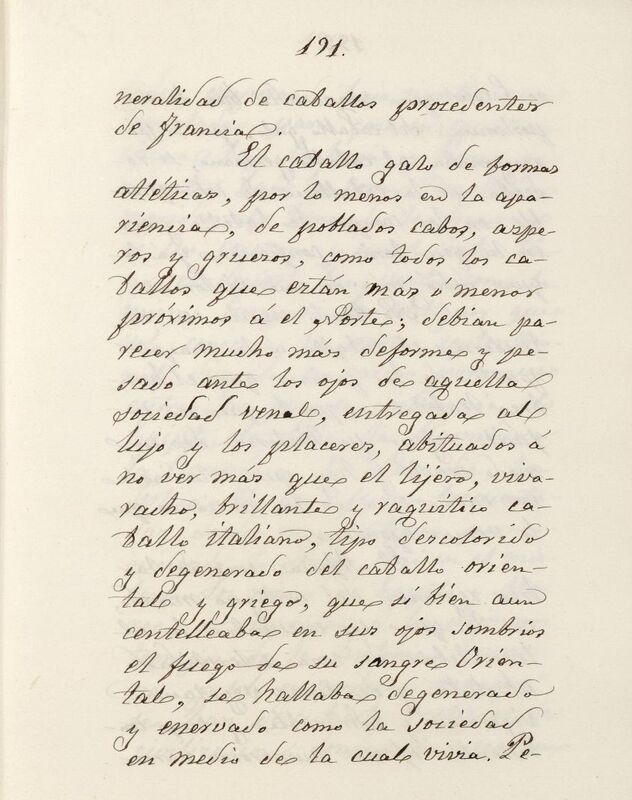 191.
neralidad de caballos procedentes
de Francia.
El caballo galo de formas
atléticas, por lo menos en la apa-
riencia, de poblados cabos, aspe-
ros y gruezos, como todos los ca-
ballos que están más ó menos
próximos á el Norte; debian pa-
recer mucho más deforme y pe-
sado ante los ojos de aquella
sociedad venal, entregada al
lujo y los placeres, abituados á
no ver más que el lijero, viva-
racho, brillante y raquitico ca-
ballo italiano, tipo descolorido
y degenerado del caballo orien-
tal y griego, que si bien aun
centelleaba en sus ojos sombrios
el fuego de su sangre Orien-
tal, se hallaba degenerado
y enervado como la sociedad
en medio de la cual vivia. Pe-